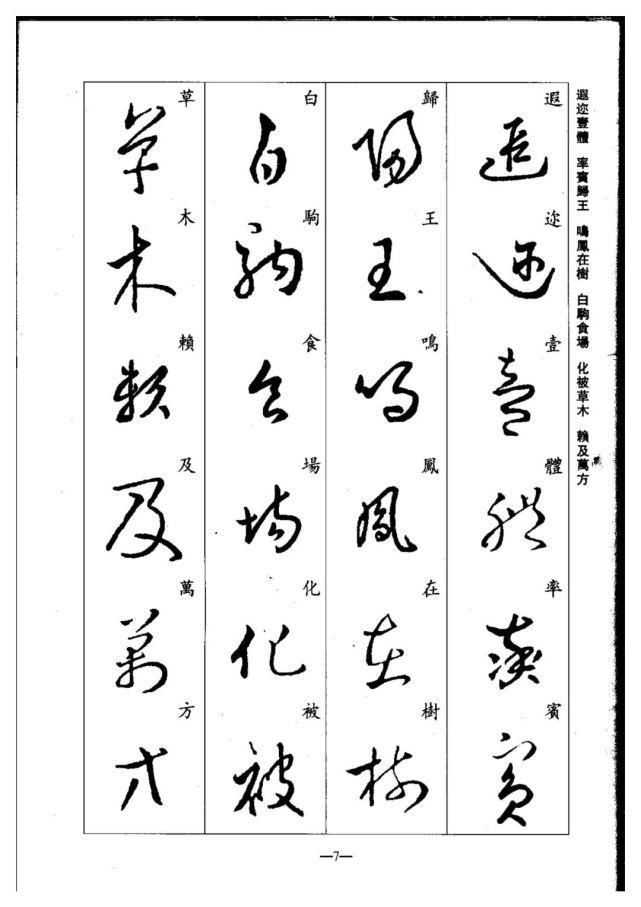 遐迩壹體 率賓歸王 鳴鳳在樹 白駒食場 化被草木 賴及萬方
遐迩壹體率賓
歸王鳴鳳在樹
白駒食場化被
草木賴及萬方
—7—